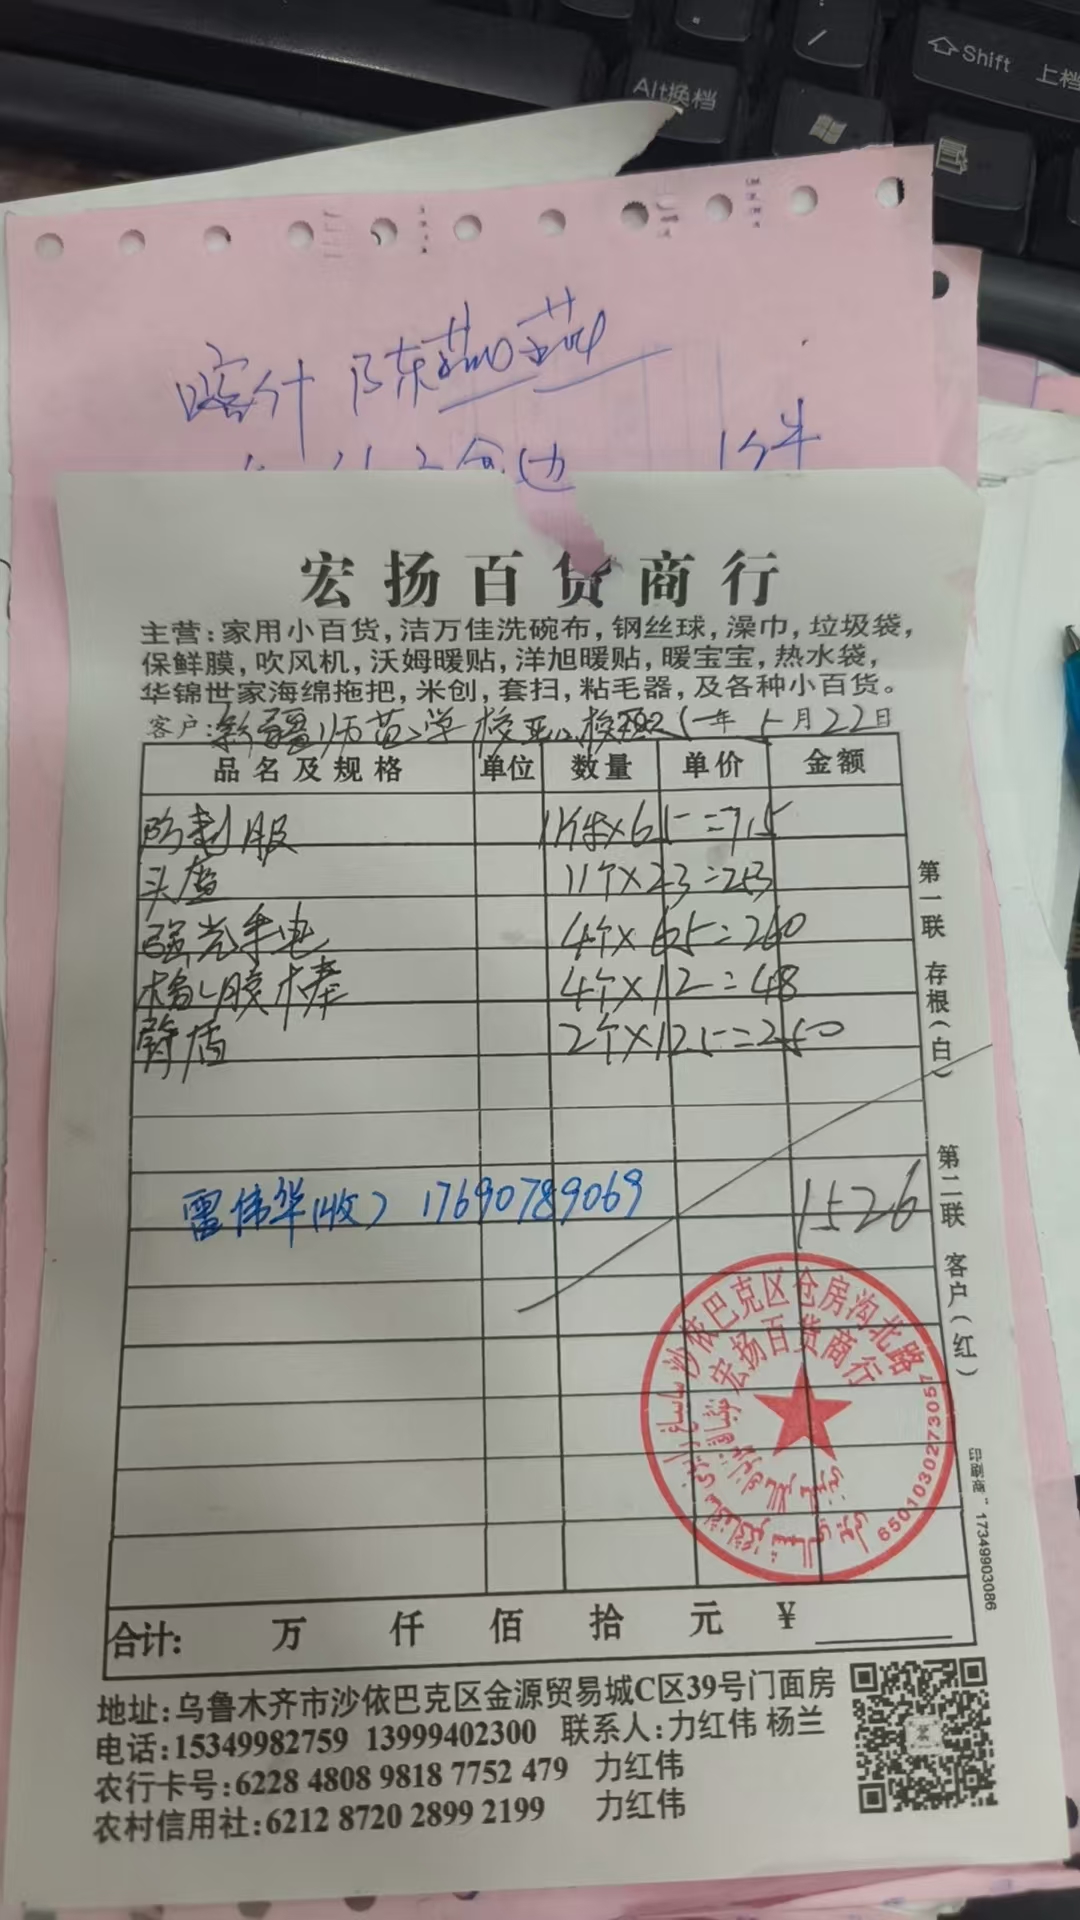 Alt换档
Shift 上档
喀什 陈
1件
宏扬百货商行
主营:家用小百货,洁万佳洗碗布,钢丝球,澡巾,垃圾袋,
保鲜膜,吹风机,沃姆暖贴,洋旭暖贴,暖宝宝,热水袋,
华锦世家海绵拖把,米创,套扫,粘毛器,及各种小百货。
客户: 新疆师范学校 年5月22日
品名及规格 单位 数量 单价 金额
防刺服 11件×65=715
头盔 11个×23=253
强光手电 4个×65=260
橡胶棒 4个×12=48
臂盾 2个×125=250
雷伟华(收) 17690789069 1526
第一联 存根(白) 第二联 客户(红)
沙依巴克区仓房沟北路
宏扬百货商行
6501030273057
印刷商:17349903086
合计: 万 仟 佰 拾 元 ¥
地址:乌鲁木齐市沙依巴克区金源贸易城C区39号门面房
电话:15349982759 13999402300 联系人:力红伟 杨兰
农行卡号:6228 4808 9818 7752 479 力红伟
农村信用社:6212 8720 2899 2199 力红伟